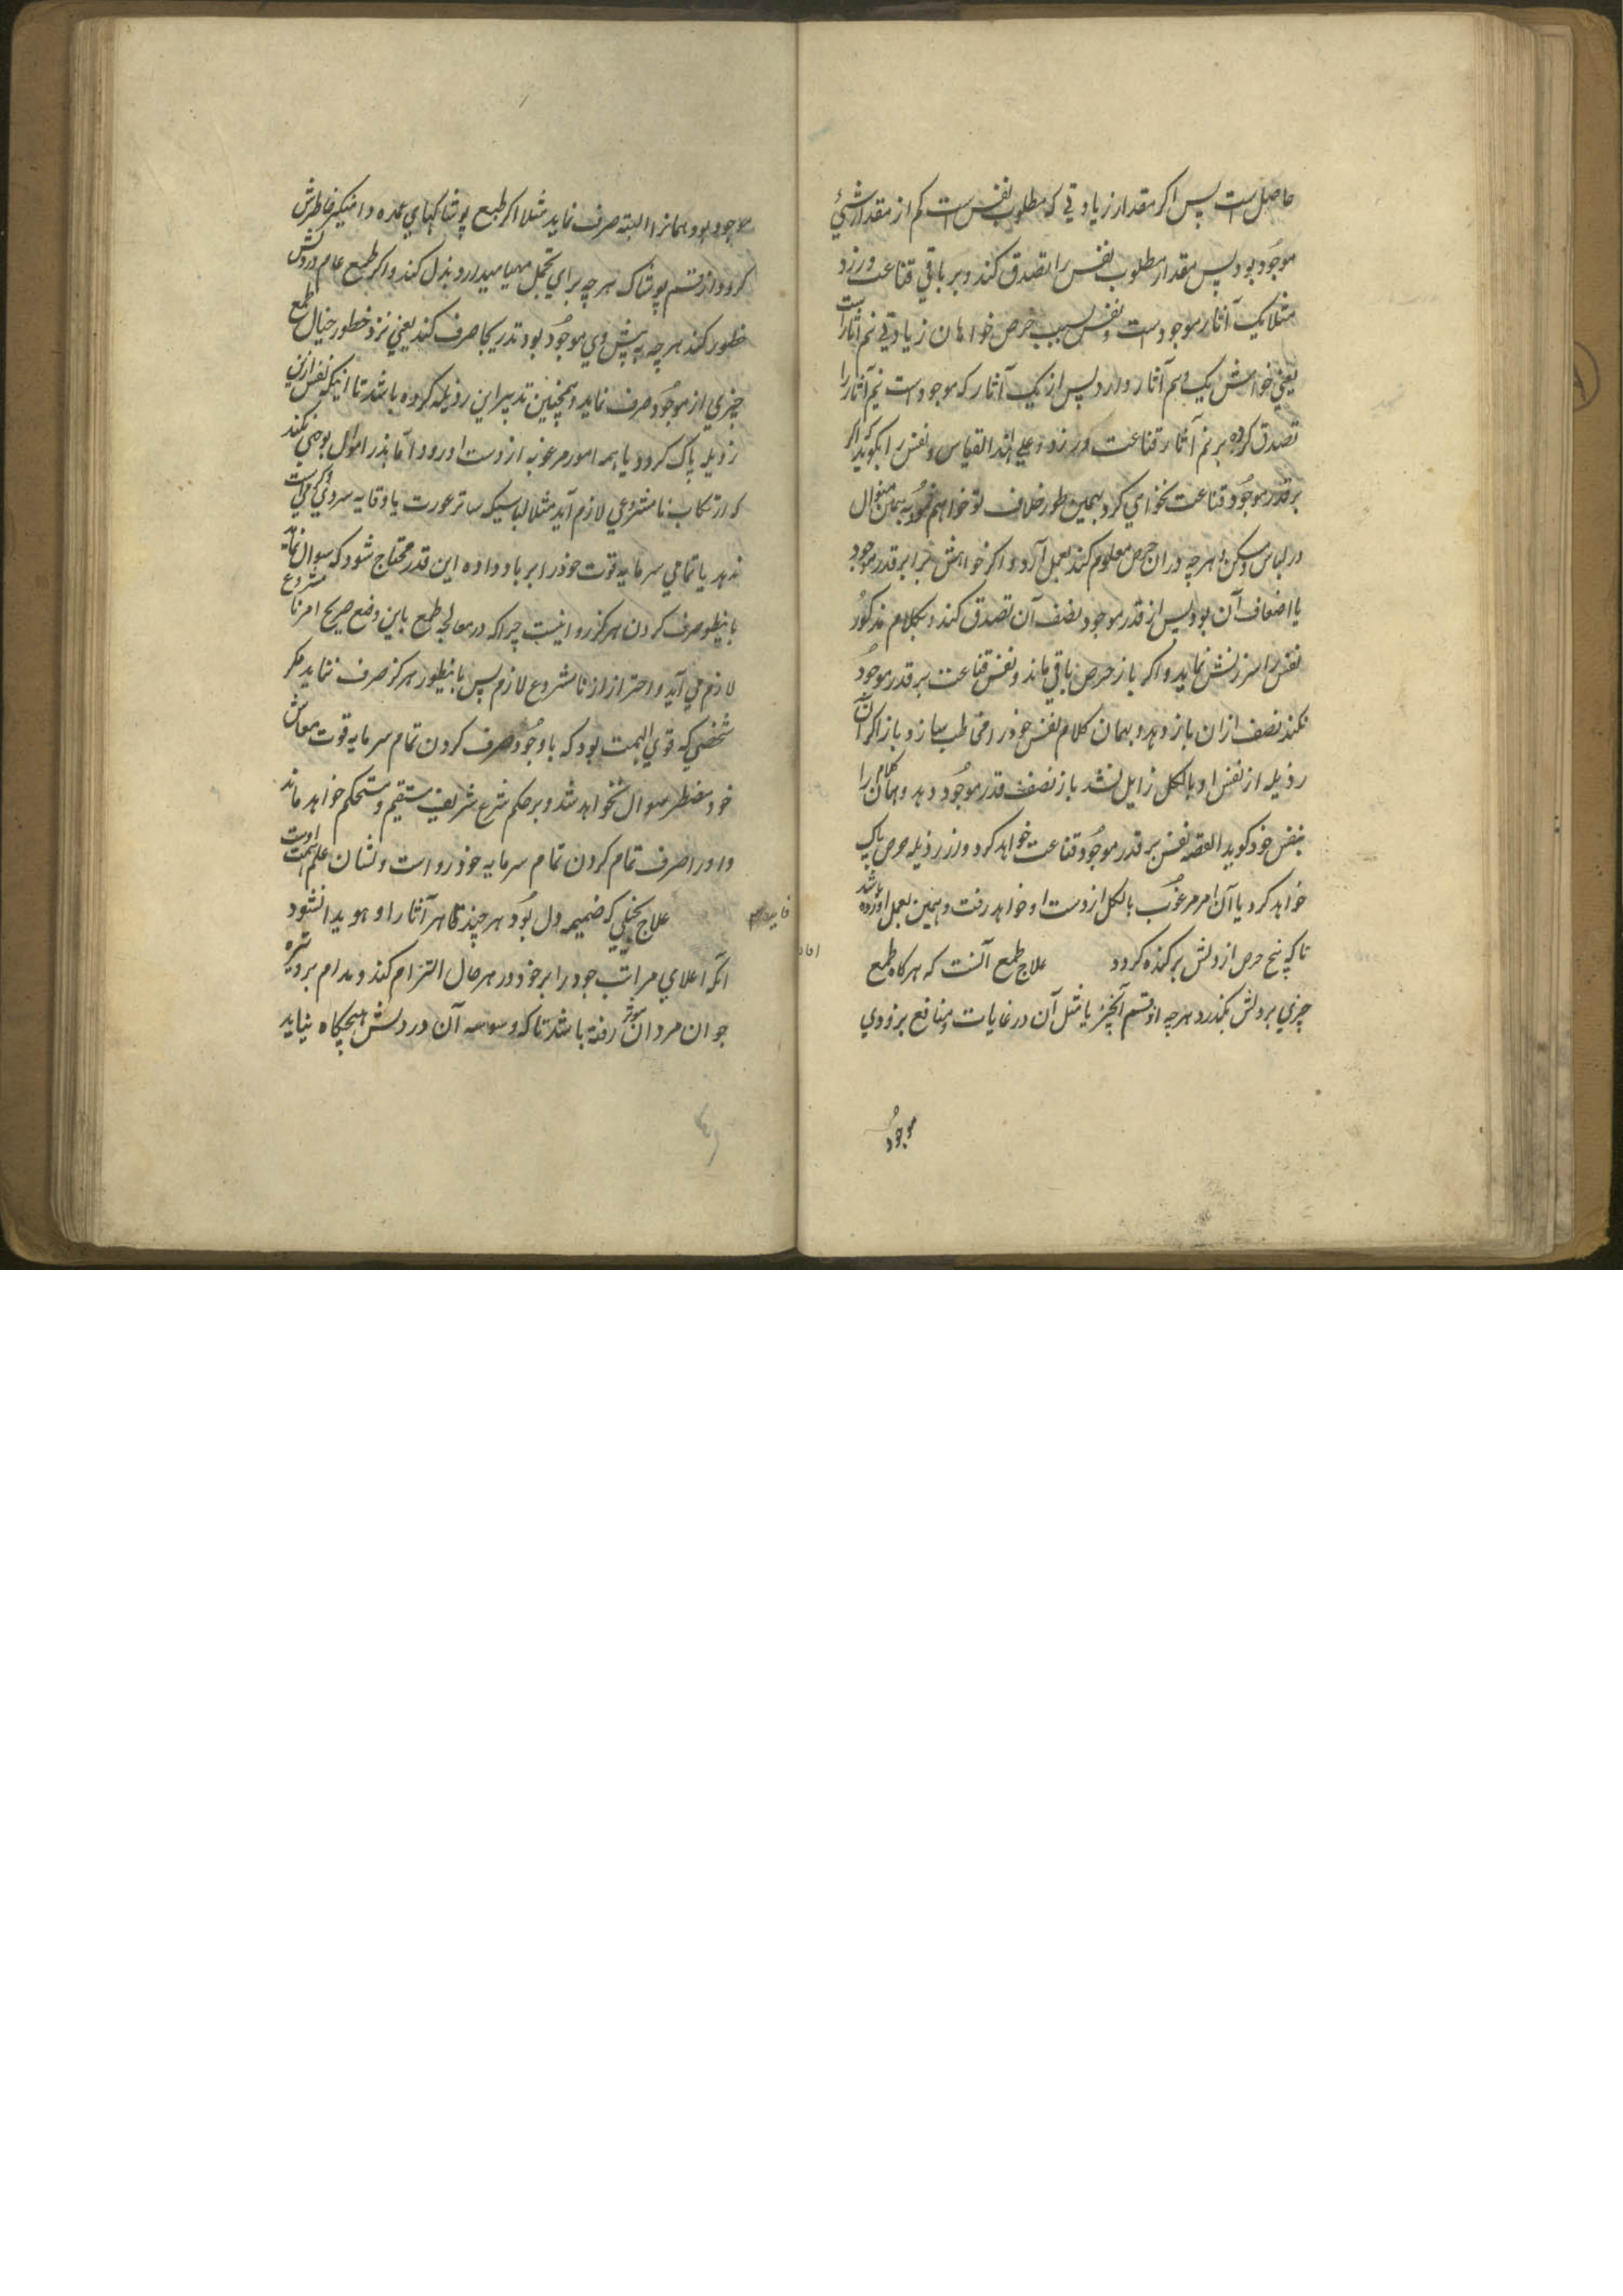 حاصل است پس اگر مقدار زیادتی که مطلوب نفس ست کم از مقدار شیٔ
موجود بود پس مقدار مطلوب نفس را تصدق کند و بر باقی قناعت ورزد
مثلا یک آثار موجود ست و نفس بسبب حرص خواهان زیادتی نیم آثار است
یعنی خواهش یک و نیم آثار دارد پس از یک آثار که موجود است نیم آثار را
تصدق کرده بر نیم آثار قناعت ورزد و علی هذا القیاس و نفس را بگوید که اگر
بر قدر موجود قناعت نخواهی کرد بهمین طور خلاف تو خواهم نمود به همین منوال
در لباس و مسکن و هر چه در ان حرص معلوم کند بعمل آرد و اگر خواهش برابر قدر موجود
یا اضعاف آن بود پس از قدر موجود نصف آن تصدق کند و بکلام مذکور
نفس را سرزنش نماید و اگر باز حرص باقی ماند و نفس قناعت بر قدر موجود
نکند نصف ازان باز دهد و بهمان کلام نفس خود را مخاطب سازد و باز اگر آن
رذیله از نفس او بالکل زایل نشد باز نصف قدر موجود دهد و همان کلام را
بنفس خود گوید القصه نفس بر قدر موجود قناعت خواهد کرد و از رذیله حرص پاک
خواهد کرد یا آن امر مرغوب بالکل از دست او خواهد رفت و همین بعمل آورده باشد
تا که بیخ حرص از دلش برکنده گردد علاج طمع آنست که هر گاه طمع
چیزی بر دلش بگذرد هر چه از قسم آنچیز یا مثل آن در غایات و منافع بر زدوی
موجود
موجود بود همانرا البته صرف نماید مثلا اگر طمع پوشاکهای عمده دامنگیر خاطرش
گردد از قسم پوشاک هر چه برای تجمل مهیا میدارد بذل کند و اگر طمع عام در دلش
خطور کند هر چه پیش وی موجود بود تدریجا صرف کند یعنی نزد خطور خیال طمع
چیزی از موجود صرف نماید و همچنین تدبیر این رذیله کرده باشد تا اینکه نفس ازین
رذیله پاک گردد یا همه امور مرغوبه از دست او رود اما بذر اموال بوجهی نکند
که ارتکاب نامشروعی لازم آید مثلا لباسیکه ساتر عورت یا وقایه سردی و گرمی است
ندهد یا تمامی سرمایه قوت خود را برباد داده این قدر محتاج شود که سوال نماید
باینطور صرف کردن هرگز روا نیست چرا که در معالجه طمع باین وضع صریح امر نامشروع
لازم می آید و احتراز از نامشروع لازم پس باینطور هرگز صرف ننماید مگر
شخصی که قوی الهمت بود که باوجود صرف کردن تمام سرمایه قوت معاش
خود مضطر سوال نخواهد شد و بر حکم شرع شریف مستقیم و مستحکم خواهد ماند
و او را صرف تمام کردن تمام سرمایه خود رواست و نشان علم همت اوست
علاج بخلی که ضمیمه دل بود هر چند ظاهر آثار او هویدا نشود
آنکه اعلای مراتب جود را بر خود در هر حال التزام کند و مدام بر وتیره
جوان مردان موثر رفته باشد تا که وسوسه آن در دلش هیچگاه نیاید